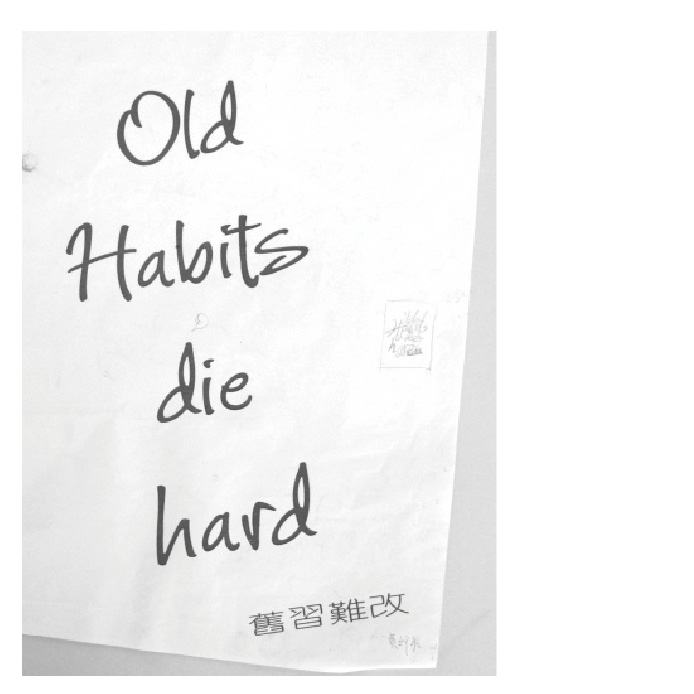 Old
Habits
die
hard
舊習難改